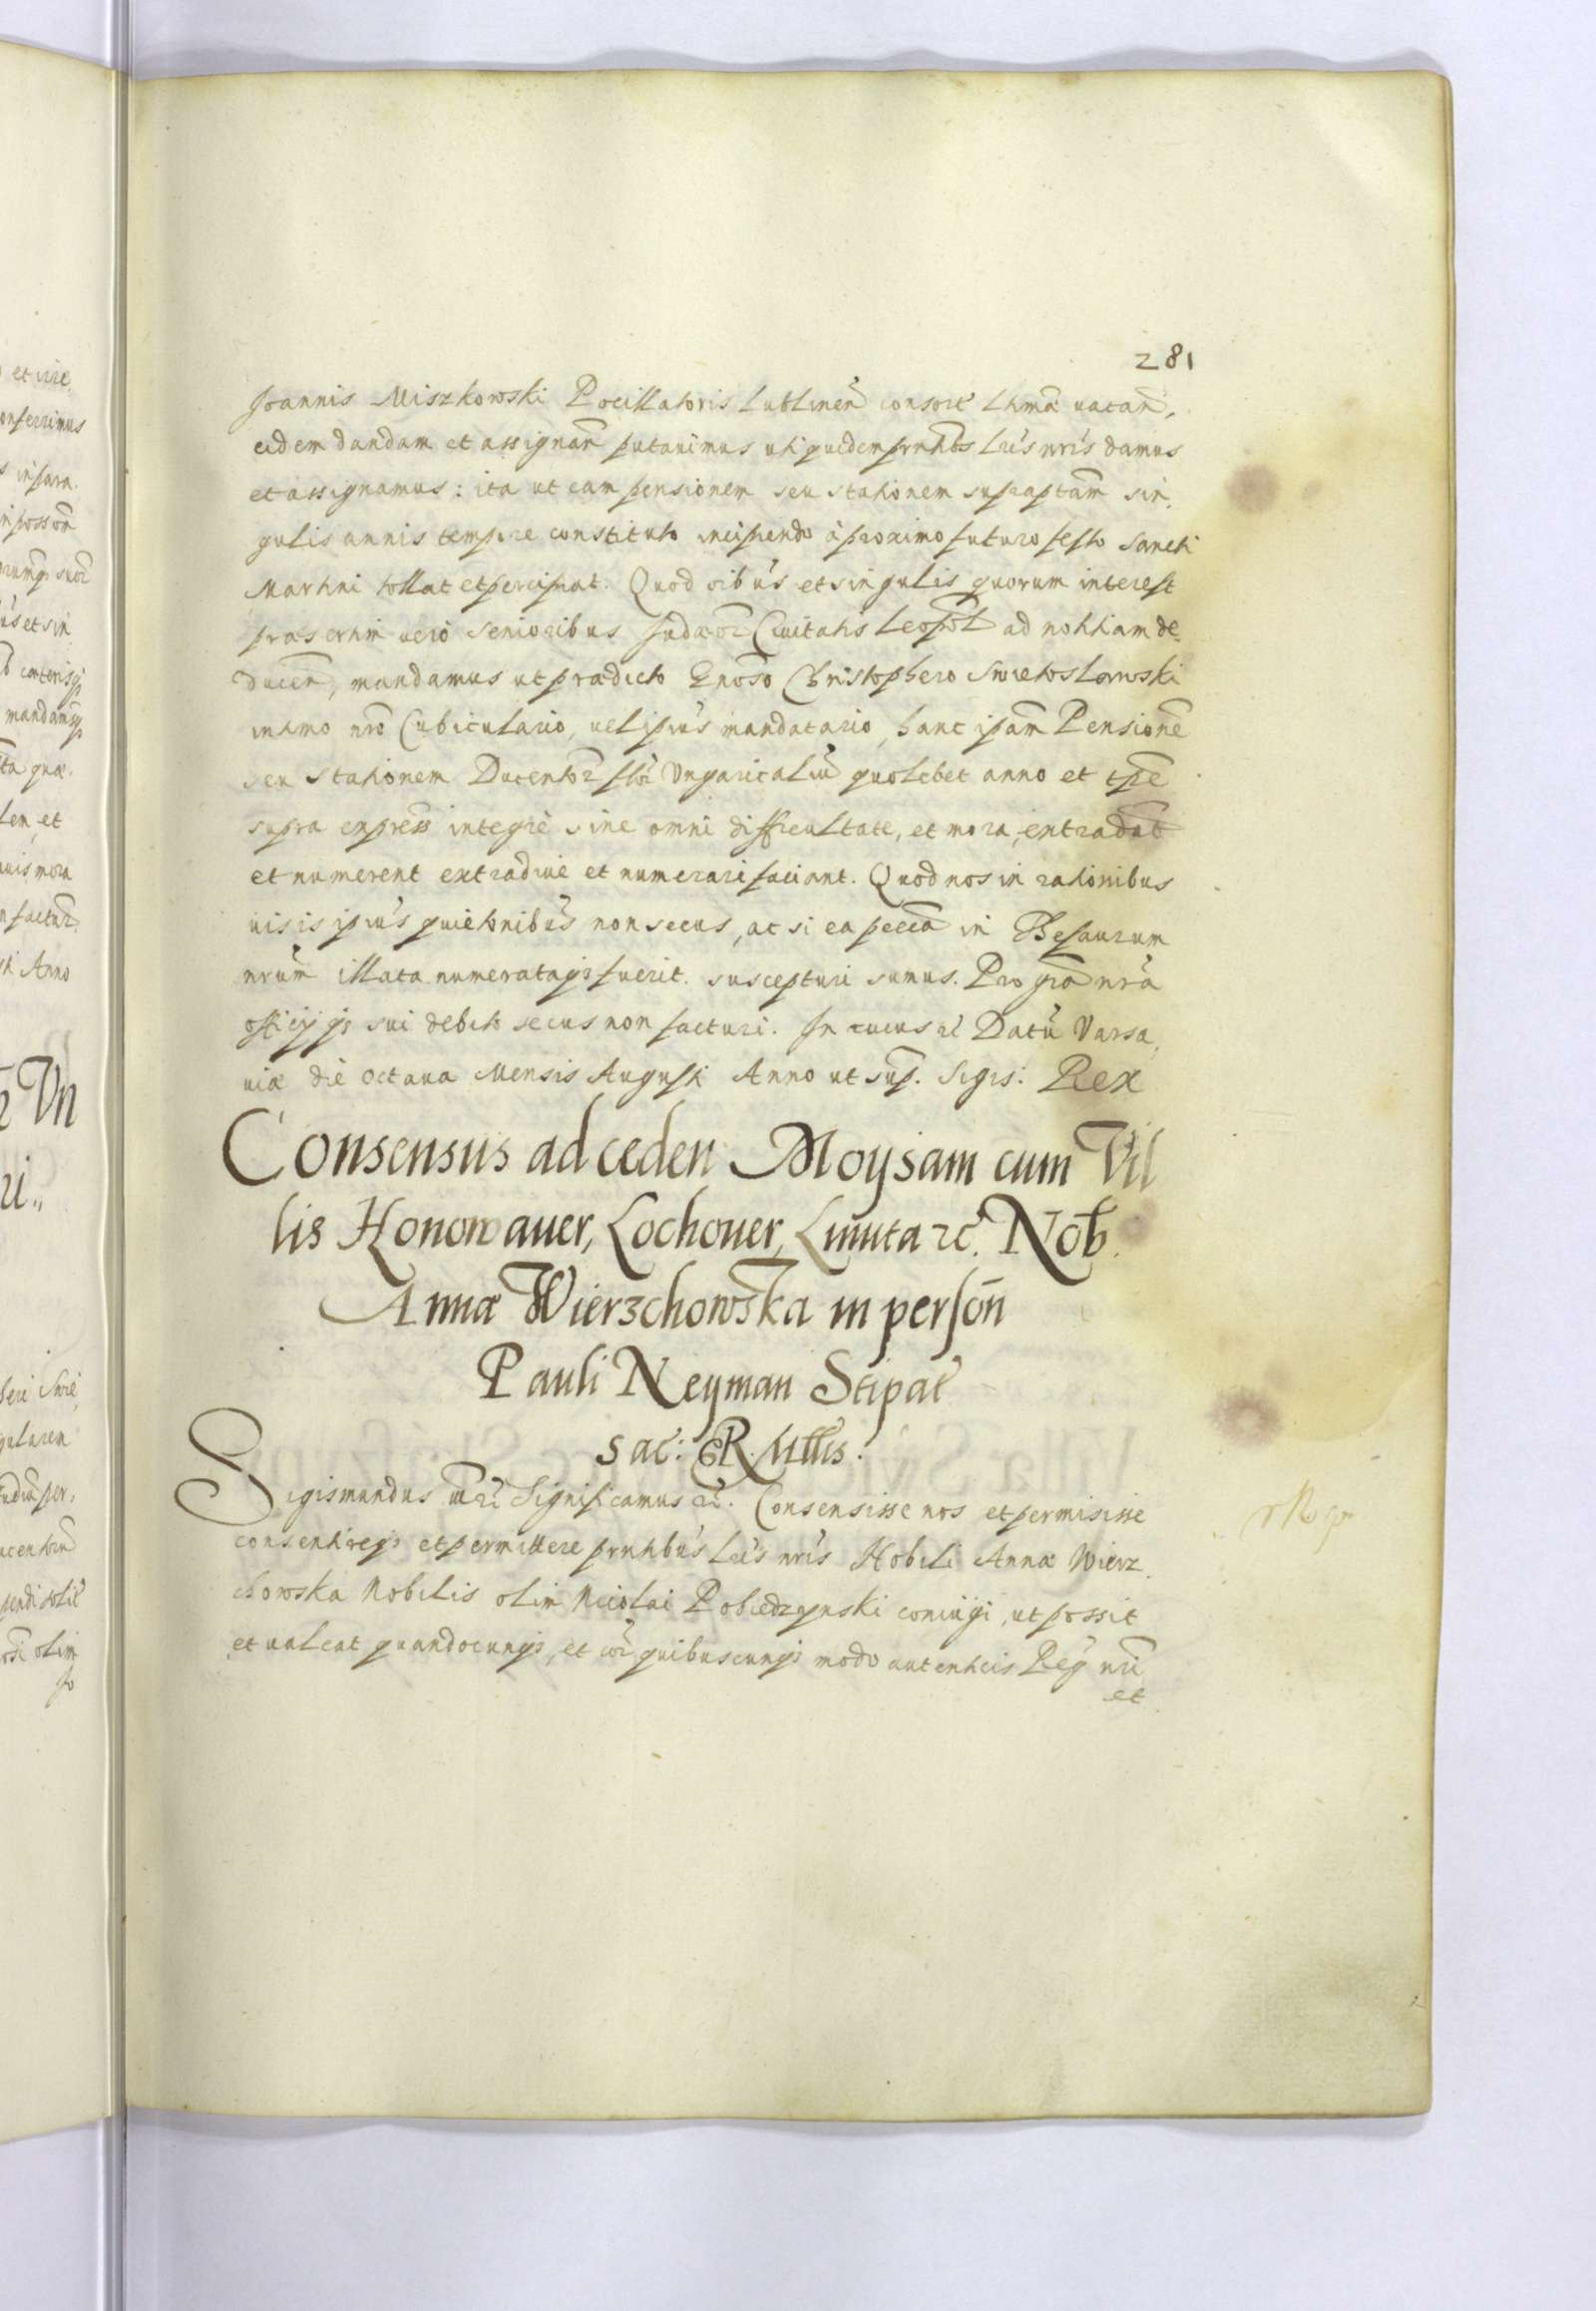 281
Joannis Miszkowski Pocillatoris Lublineñ consort̃ Lhimã vacañ,
eidem dandam et assignañ putavimus uti quidem pñtibs Lr̃is nr̃is damus
et assignamus: ita ut eam pensionem seu stationem supraptam̃ sin,
gulis annis tempore constituto incipiendo à proximo futuro festo Sancti
Martini tollat et percipiat. Quod oĩbus et singulis quorum interest
præsertim verò senioribus Judæor̃ Civitatis Leopol̃ ad notitiam de,
duceñ, mandamus ut prædicto Gnõso Christophero Swietoslawski
intimo nr̃o Cubiculario, vel ipiũs mandatario, hanc ipãm Pensionẽ
seu Stationem Ducentor̃ flõr Vngaricaliũ quolibet anno et tp̃re
supra express̃ integrè sine omni difficultate, et mora, extradat̃
et numerent extradive et numerari faciant. Quod nos in rationibus
visis ipiũs quietõnibũs non secus, ac si ea pecc̃a in Thesaurum
nr̃um illata numerataqз fuerit. suscepturi sumus. Pro grã nr̃a
officijqз sui debito secus non facturi. In cuius rẽ Datũ Varsa,
viæ diẽ octava Mensis Augusti Anno ut sup̃. Sigis: Rex
Consensus ad ceden Moysam cum Vil
lis Honowauer, Lochouer, Lmuta rc̃. Nob.
Annæ Wierzchowska in persoñ
Pauli Neyman Stipat̃
sac̃: R. Mttis:
Sigismundus Significamus rc̃. Consensisse nos et permisisse
consentireqз et permittere pñtibũs Lr̃is nr̃is Nobili Annæ Wierz.
chowska Nobilis olim Nicolai Pobiedzynski coniugi, ut possit
et valeat quandocunqз, et cor̃ quibuscunqз modo autenticis Reg̃ nr̃i
et